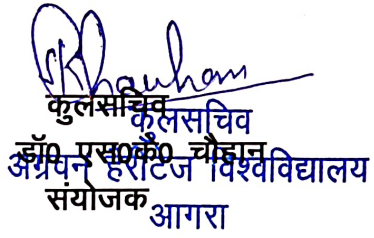 कुलसचिव
कुलसचिव
डॉ0 एस0के0 चौहान
अग्रवन हेरिटेज विश्वविद्यालय
संयोजक
आगरा